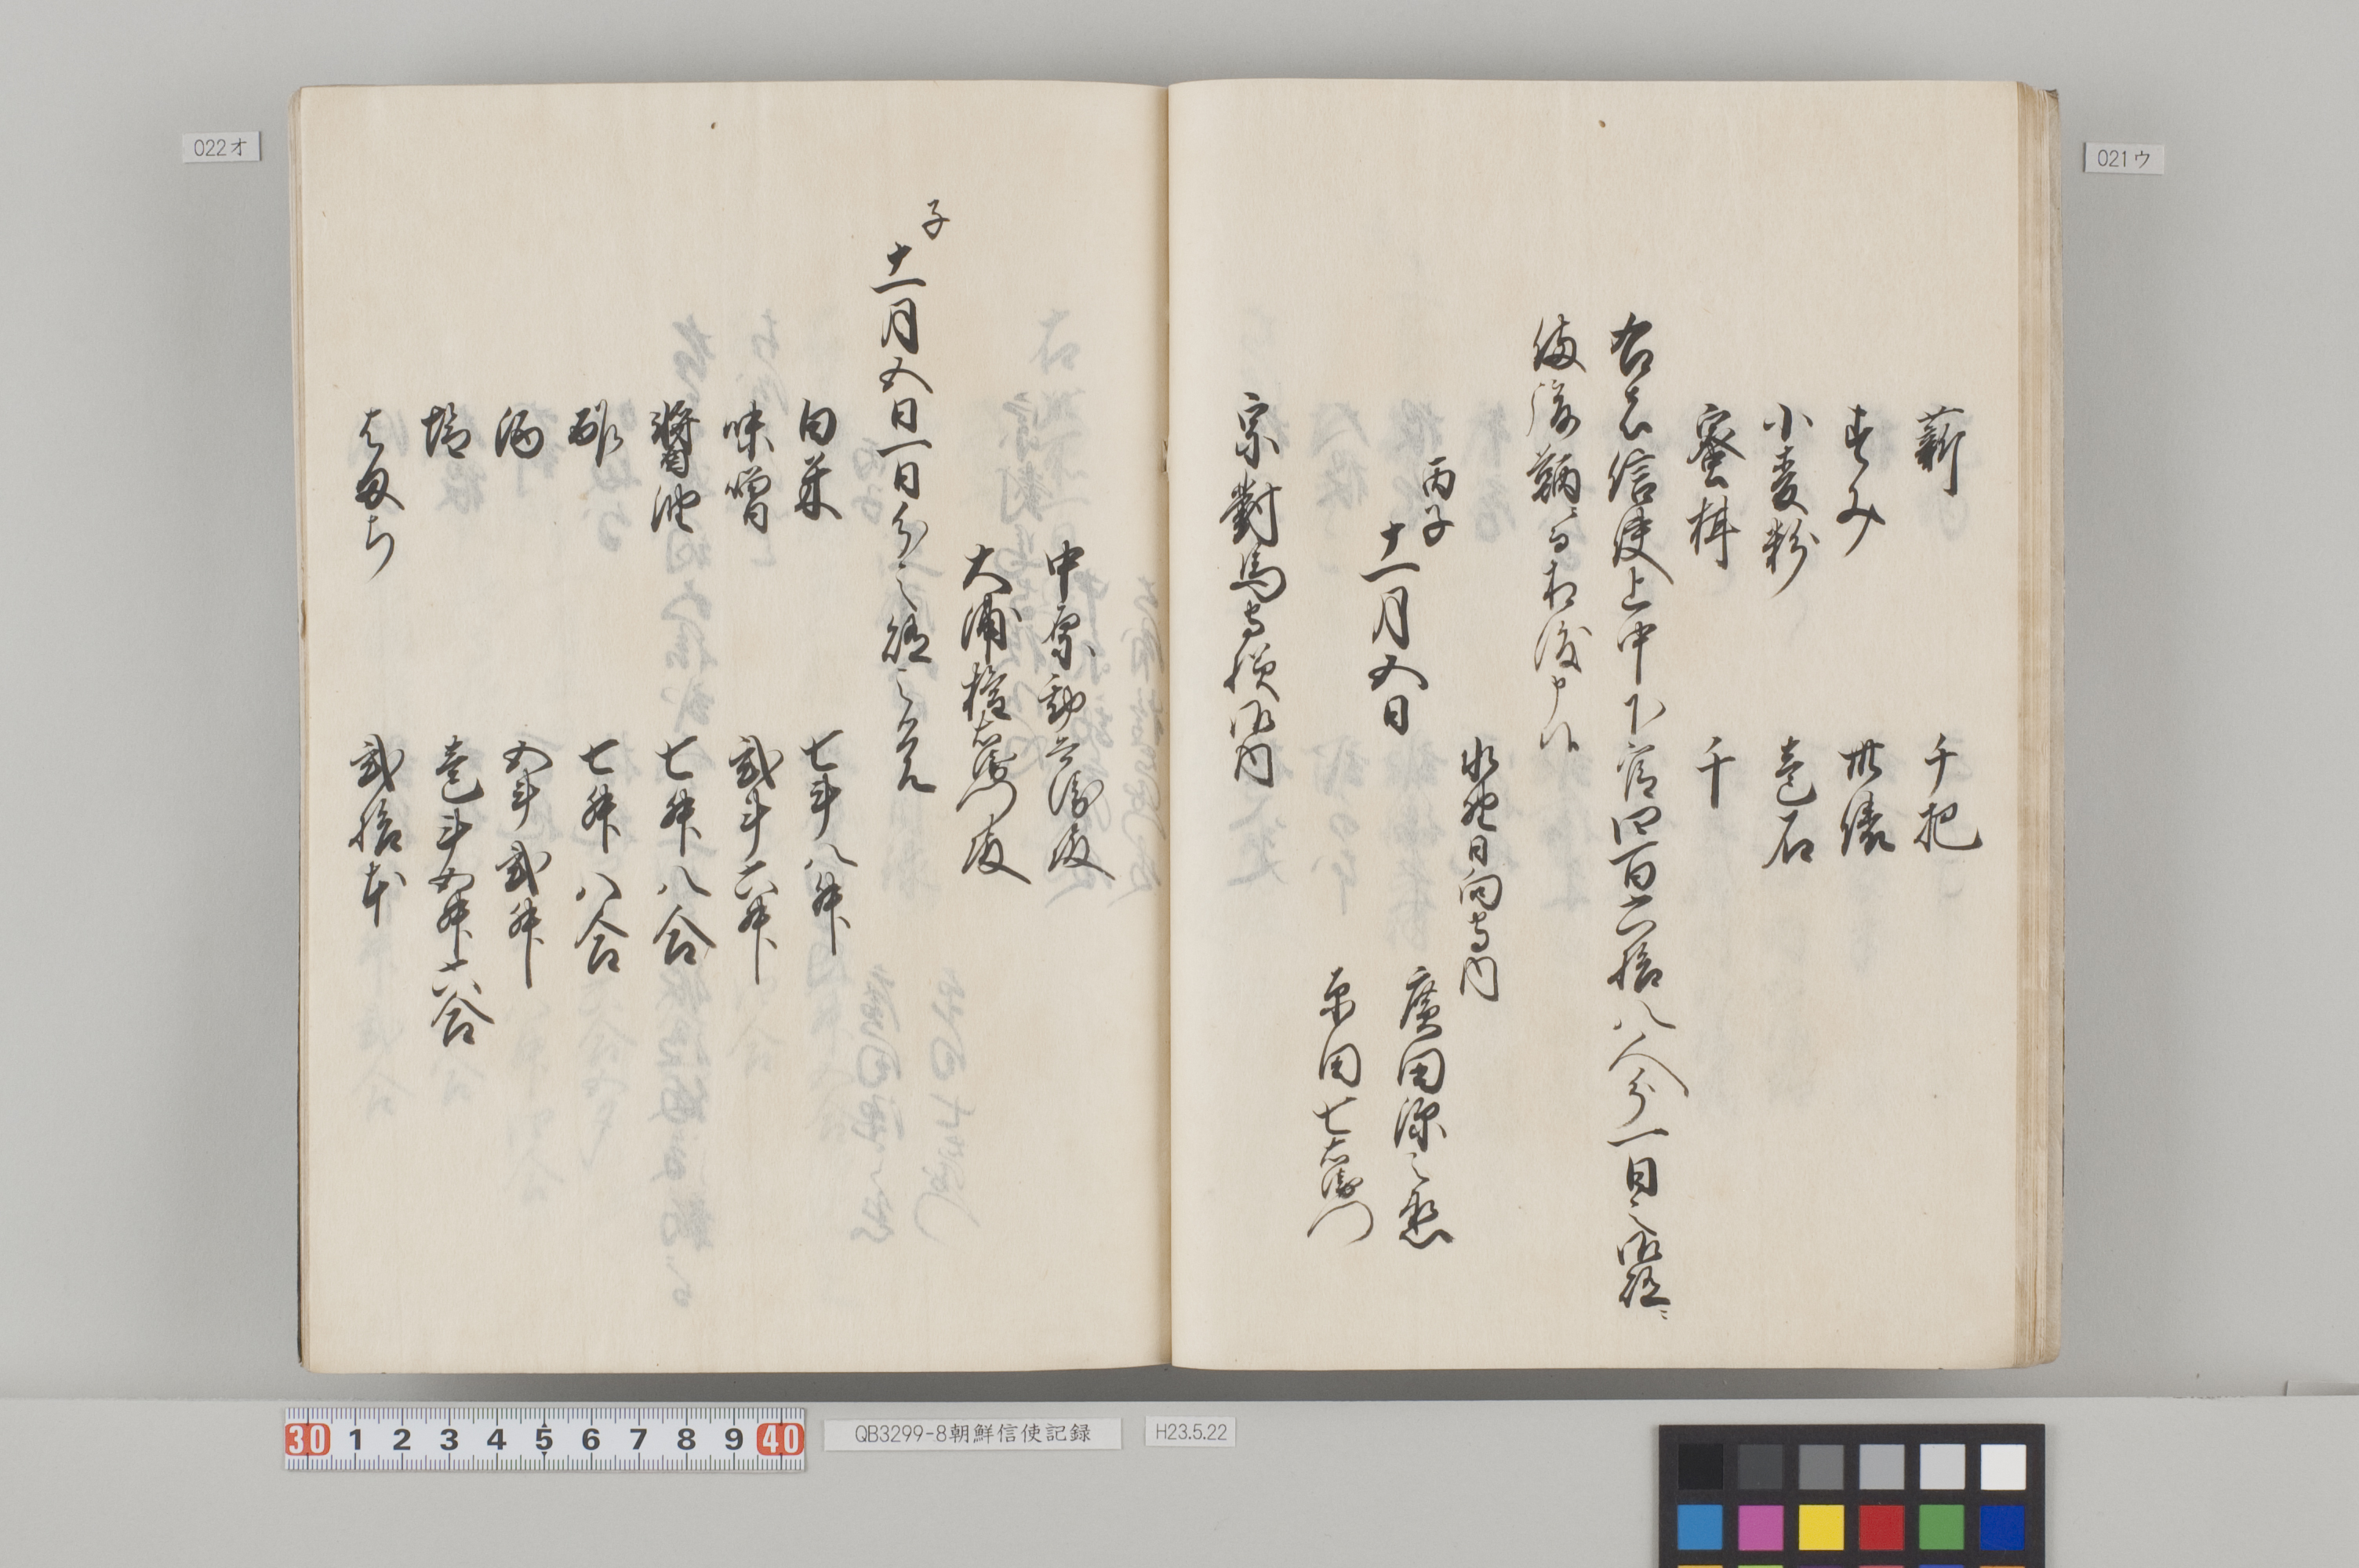 021ウ
薪　千把
すみ　卅俵
小麦粉　壱石
蜜柑　千
右者信使上中下官四百六拾八人分一日之御極ニ
備後鞆ニ而相渡申候
水野日向守内
丙子
十一月五日　廣田深之丞
原田七右衛門
宗對馬守様御内
中原勘兵衛殿
大浦権右衛門殿
022オ
子
十一月五日一日分之極之覚
白米　七斗八舛
味噌　弐斗六舛
醤油　七舛八合
酢　七舛八合
酒　五斗弐舛
塩　壱斗五舛六合
弐拾本
30 1 2 3 4 5 6 7 8 9 40
QB3299-8朝鮮信使記録
H23.5.22